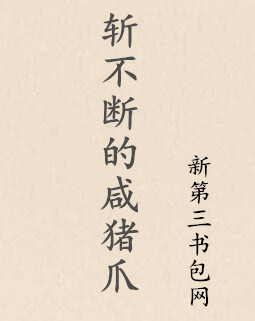 斩不断的咸猪爪
新第三书包网